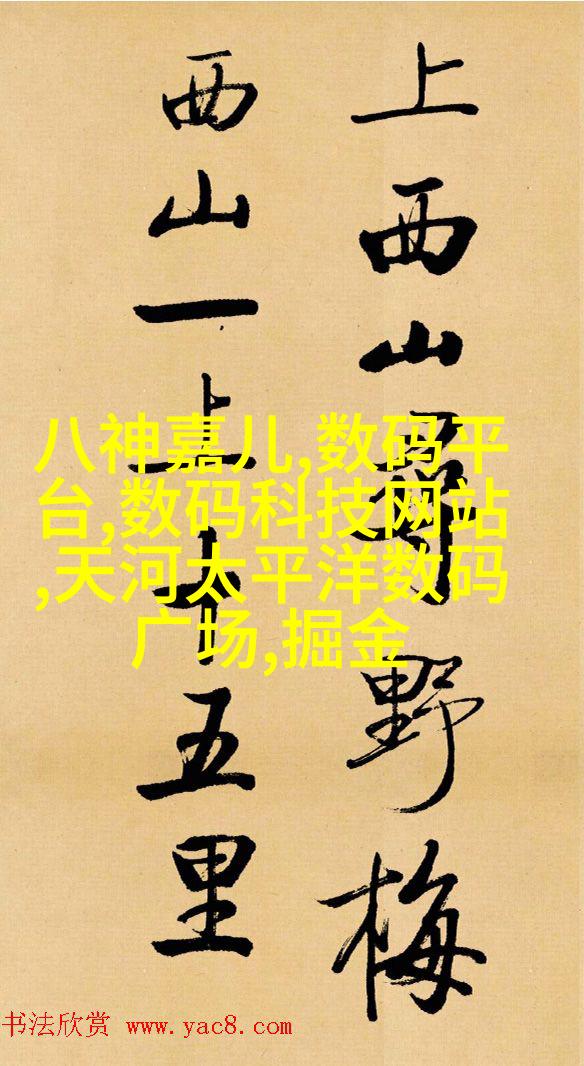 上西山尋野梅
西山一上十五里
八神嘉儿,数码平
台,数码科技网站
,天河太平洋数码
广场,掘金
书法欣赏 www.yac8.com